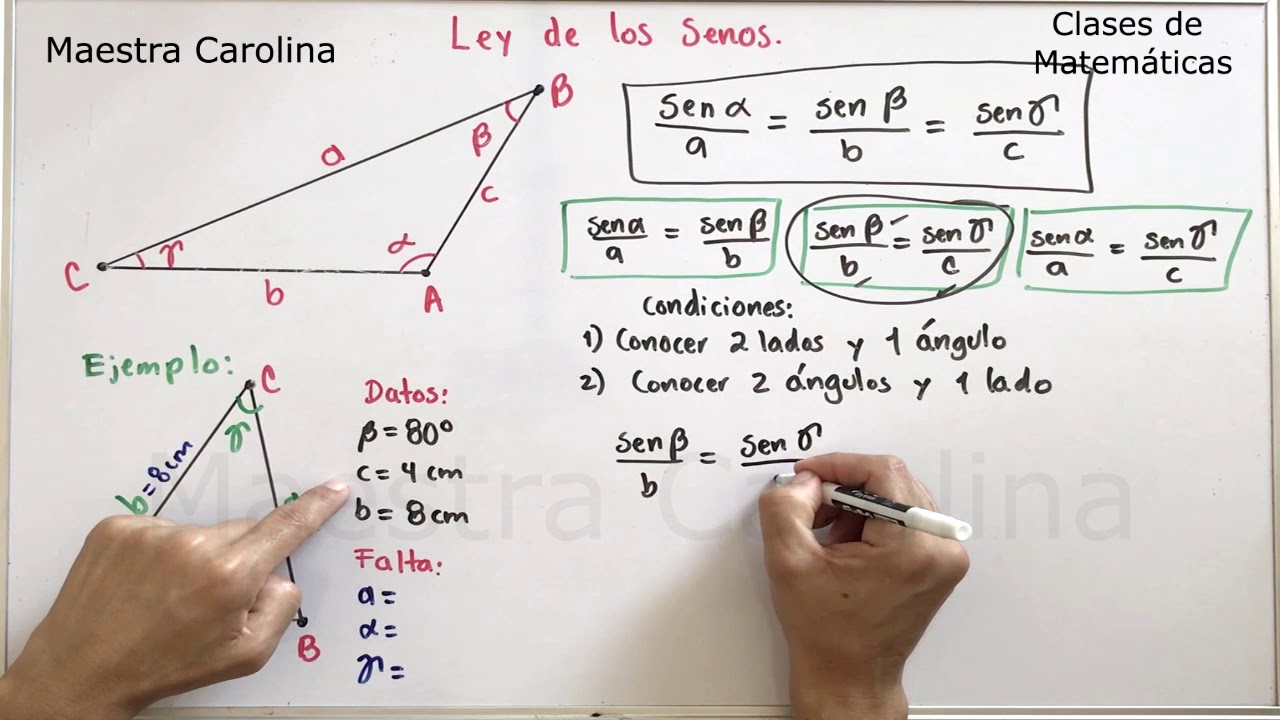 Maestra Carolina
Ley de los Senos.
Clases de
Matemáticas
B
β
a
c
γ
α
C
b
A
sen α / a = sen β / b = sen γ / c
sen α / a = sen β / b
sen β / b = sen γ / c
sen α / a = sen γ / c
Condiciones:
1) Conocer 2 lados y 1 ángulo
2) Conocer 2 ángulos y 1 lado
Ejemplo:
C
γ
b = 8 cm
B
Datos:
β = 80°
c = 4 cm
b = 8 cm
Falta:
a =
α =
γ =
sen β / b = sen γ
Maestra Carolina